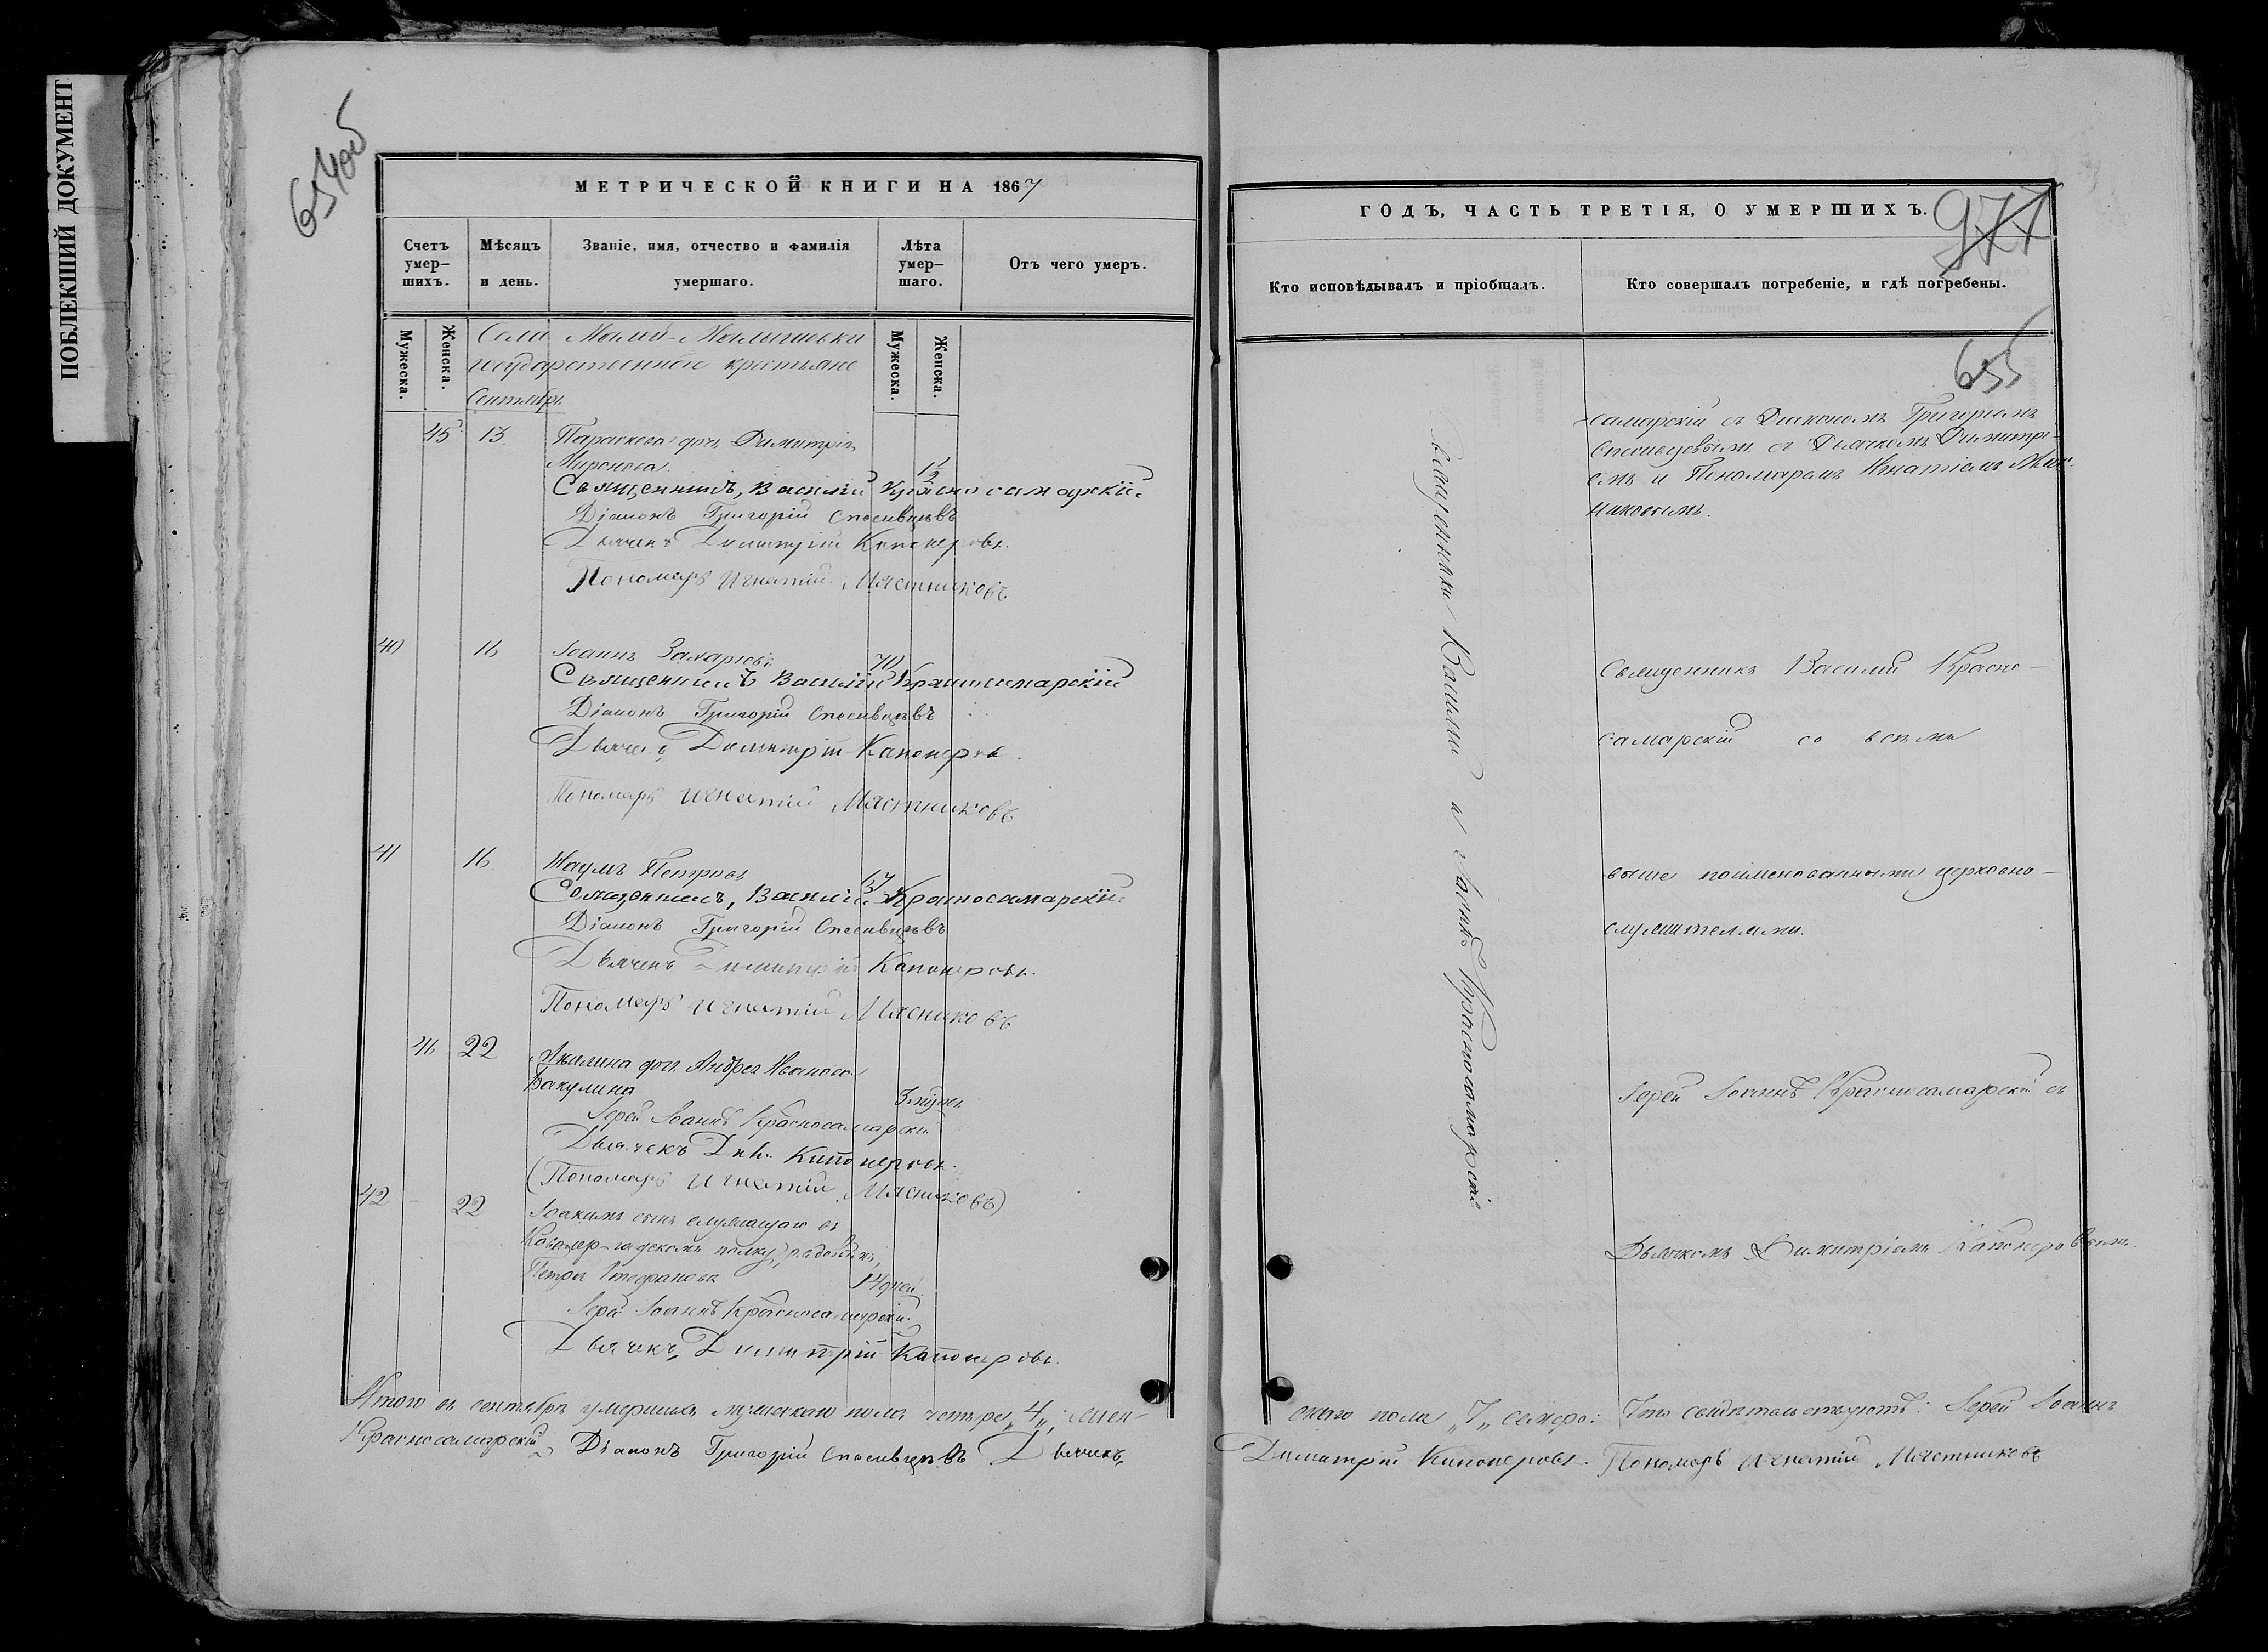 ПОБЛЕКШИЙ ДОКУМЕНТ
654об
МЕТРИЧЕСКОЙ КНИГИ НА 1867
Счетъ умер-шихъ.
Мѣсяцъ и день.
Званіе, имя, отчество и фамилія умершаго.
Лѣта умер-шаго.
Отъ чего умеръ.
Мужеска.
Женска.
Мужеска.
Женска.
Села Малой-Малышевки
государственные крестьяне
Сентябрь
45 13. Параскева дочь Димитрія
Миронова 1½
Священникъ, Василій Красносамарскій
Діаконъ Григорій Спасивцевъ
Дьячекъ Димитрій Капонеровъ.
Пономарь Игнатій Мястниковъ
40 16 Іоаннъ Захаровъ 70
Священникъ Василій Красносамарскій
Діаконъ Григорій Спасивцевъ
Дьячекъ Димитрій Капонеровъ.
Пономарь Игнатій Мястниковъ
41 16 Наумъ Петровъ
Священникъ, Василій Красносамарскій
Діаконъ Григорій Спасивцевъ
Дьячекъ Димитрій Капонеровъ.
Пономарь Игнатій Мясниковъ
46 22 Акилина дочь Андрея Иванова
Бакулина
Іерей Іоаннъ Красносамарскій
Дьячекъ Капонеровъ.
(Пономарь Игнатій Мясниковъ)
42 22 Іоакимъ сынъ служащаго въ
полку, рядовымъ,
Петра Стефанова 14 дней.
Іерей Іоаннъ Красносамарскій.
Дьячекъ, Димитрій Капонеровъ.
Итого въ сентябрѣ умершихъ мужескаго пола четыре „4„; жен-
Красносамарскій Діаконъ Григорій Спасивцевъ Дьячекъ,
ГОДЪ, ЧАСТЬ ТРЕТІЯ, О УМЕРШИХЪ.
977
Кто исповѣдывалъ и пріобщалъ.
Кто совершалъ погребеніе, и гдѣ погребены.
655
Священники Василій и Іоаннъ Красносамарскіе
самарскій съ Діакономъ Григоріемъ
Спасивцевымъ съ Дьячкомъ Димитрі-
емъ и Пономаремъ Игнатіемъ Мяс-
никовымъ.
Священникъ Василій Красно-
самарскій со всѣми
выше поименованными церковно-
служителями.
Іерей Іоаннъ Красносамарскій съ
Дьячкомъ Димитріемъ Капонеровымъ.
скаго пола „7„ семеро: Что свидѣтельствуютъ: Іерей Іоаннъ
Димитрій Капонеровъ. Пономарь Игнатій Мястниковъ